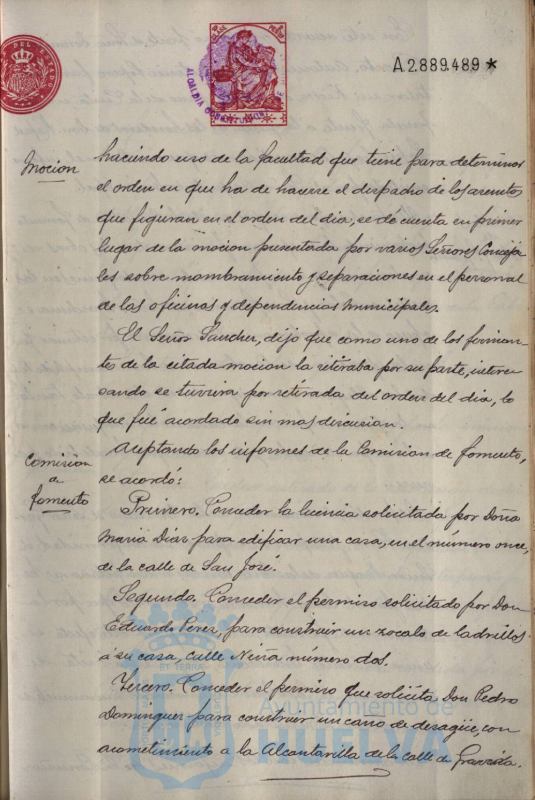 A2.889.489 *
ALCALDIA CONSTITUCIONAL DE
Mocion
haciendo uso de la facultad que tiene para determinar
el orden en que ha de hacerse el despacho de los asuntos
que figuran en el orden del dia, se dé cuenta en primer
lugar de la mocion presentada por varios Señores Conceja
les sobre nombramiento y separaciones en el personal
de las oficinas y dependencias municipales.
El Señor Sanchez, dijo que como uno de los firman-
tes de la citada mocion la retiraba por su parte, intere-
sando se tuviera por retirada del orden del dia, lo
que fué acordado sin mas discusion.
Comision
de
fomento
Aceptando los informes de la Comision de fomento,
se acordó:
Primero. Conceder la licencia solicitada por Doña
Maria Dias para edificar una casa, en el número once,
de la calle de San José.
Segundo. Conceder el permiso solicitado por Don
Eduardo Perez, para construir un zocalo de ladrillos
á su casa, calle Niña número dos.
Tercero. Conceder el permiso que solicita Don Pedro
Dominguez para construir un caño de desagüe, con
acometimiento a la Alcantarilla de la calle de
Ayuntamiento de
HUELVA